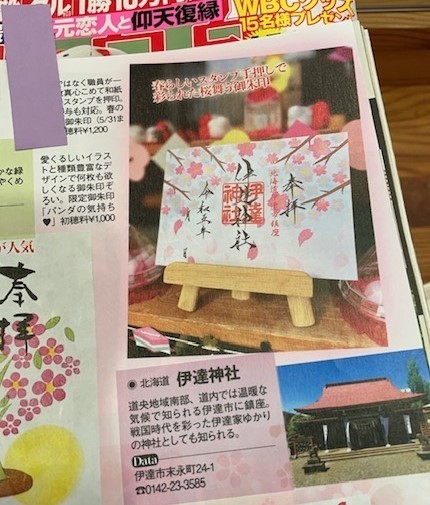 元恋人と仰天復縁
WBCグッズ
15名様プレゼン
ではなく職員が一
真心こめて和紙
スタンプを押印。
与も対応。春の
御朱印(5/31ま
初穂料¥1,200
春らしいスタンプ手押しで
彩られた桜舞う御朱印
愛くるしいイラス
トと種類豊富なデ
ザインで何枚も欲
しくなる御朱印ぞ
ろい。限定御朱印
「パンダの気持ち
♥」初穂料¥1,000
奉拝
北海道
伊達神社
伊達
神社
令和五年
月
が人気
奉拝
●北海道 伊達神社
道央地域南部、道内では温暖な
気候で知られる伊達市に鎮座。
戦国時代を彩った伊達家ゆかり
の神社としても知られる。
Data
伊達市末永町24-1
☎0142-23-3585